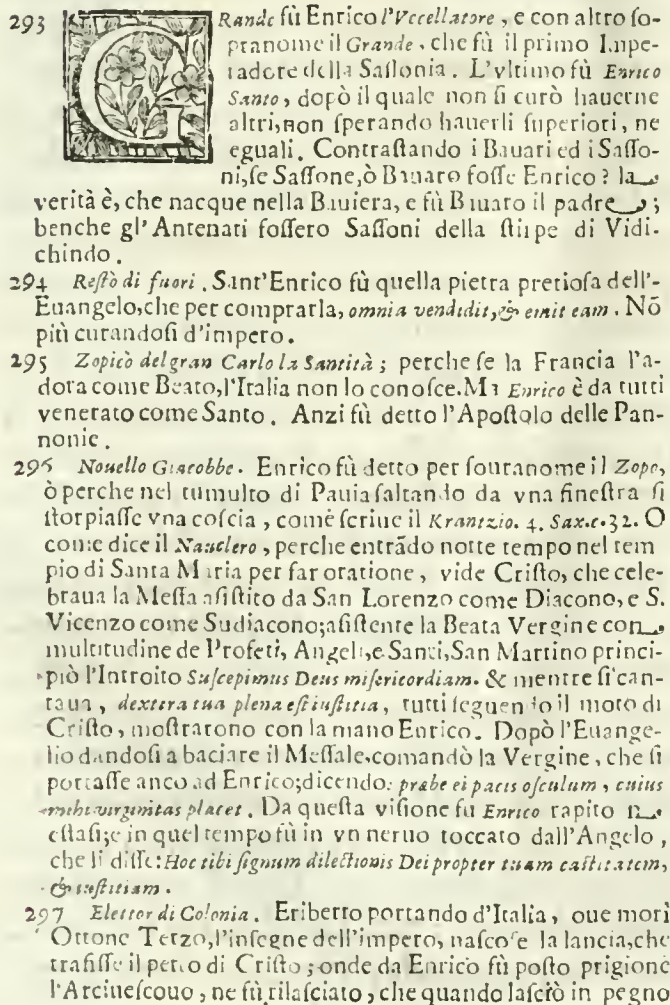 293 GRande fù Enrico l'Vccellatore, e con altro so-
pranome il Grande, che fù il primo Inpe-
radore della Sassonia. L'vltimo fù Enrico
Santo, dopò il quale non si curò hauerne
altri, non sperando hauerli superiori, ne
eguali. Contrastando i Bauari ed i Sasso-
ni, se Sassone, ò Bauaro fosse Enrico? la
verità è, che nacque nella Bauiera, e fù Bauaro il padre;
benche gl'Antenati fossero Sassoni della stirpe di Vidi-
chindo.
294 Restò di fuori. Sant'Enrico fù quella pietra pretiosa dell'-
Euangelo, che per comprarla, omnia vendidit, & emit eam. Nõ
più curandosi d'impero.
295 Zopicò del gran Carlo la Santità; perche se la Francia l'a-
dora come Beato, l'Italia non lo conosce. Ma Enrico è da tutti
venerato come Santo. Anzi fù detto l'Apostolo delle Pan-
nonie.
296 Nouello Giacobbe. Enrico fù detto per souranome il Zopo,
ò perche nel tumulto di Pauia saltando da vna finestra si
storpiasse vna coscia, come scriue il Krantzio. 4. Sax.c.32. O
come dice il Nauclero, perche entrãdo notte tempo nel tem
pio di Santa Maria per far oratione, vide Cristo, che cele-
braua la Messa asistito da San Lorenzo come Diacono, e S.
Vicenzo come Sudiacono; asistente la Beata Vergine con
multitudine de Profeti, Angeli, e Santi, San Martino princi-
piò l'Introito Suscepimus Deus misericordiam. & mentre si can-
taua, dextera tua plena est iustitia, tutti seguendo il moto di
Cristo, mostrarono con la mano Enrico. Dopò l'Euange-
lio dandosi a baciare il Messale, comandò la Vergine, che si
portasse anco ad Enrico; dicendo: præbe ei pacis osculum, cuius
mihi virginitas placet. Da questa visione fu Enrico rapito in
estasi; e in quel tempo fù in vn neruo toccato dall'Angelo,
che li disse: Hoc tibi signum dilectionis Dei propter tuam castitatem,
& iustitiam.
297 Elettor di Colonia. Eriberto portando d'Italia, oue morì
Ottone Terzo, l'insegne dell'impero, nascose la lancia, che
trafisse il petto di Cristo; onde da Enrico fù posto prigione
l'Arciuescouo, ne fù rilasciato, che quando lasciò in pegno